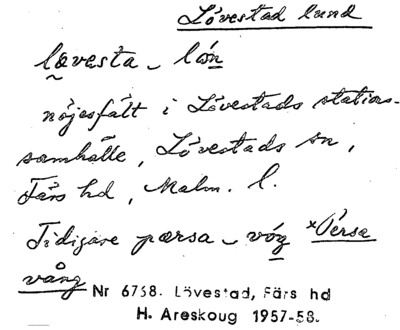 Lövestad lund
lævesta - lón
nöjesfält i Lövestads stations-
samhälle, Lövestads sn,
Färs hd, Malm. l.
Tidigare pærsa - vóŋ *Pérsa
vång
Nr 6758. Lövestad, Färs hd
H. Areskoug 1957-58.